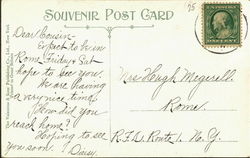 SOUVENIR POST CARD
75
Dear Cousin-
Expect to be in
Rome Friday & Sat
hope to see you.
We are having
a very nice time.
How did you
reach home?
Hoping to see
you soon. Daisy.
Mrs Hugh
Rome.
R.F.D. Route 1. N.Y.